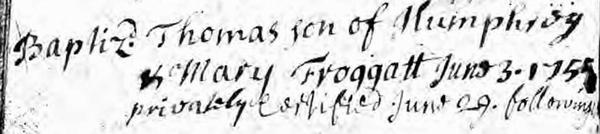 Baptizd. Thomas son of Humphrey
& Mary Froggatt June 3. 1755
privately Certified June 29. following